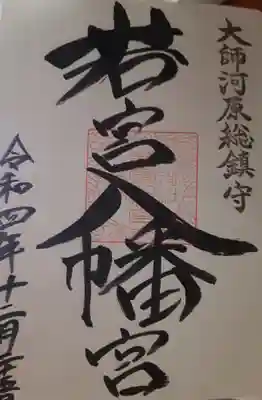 大師河原総鎮守
若宮八幡宮
令和四年十二月